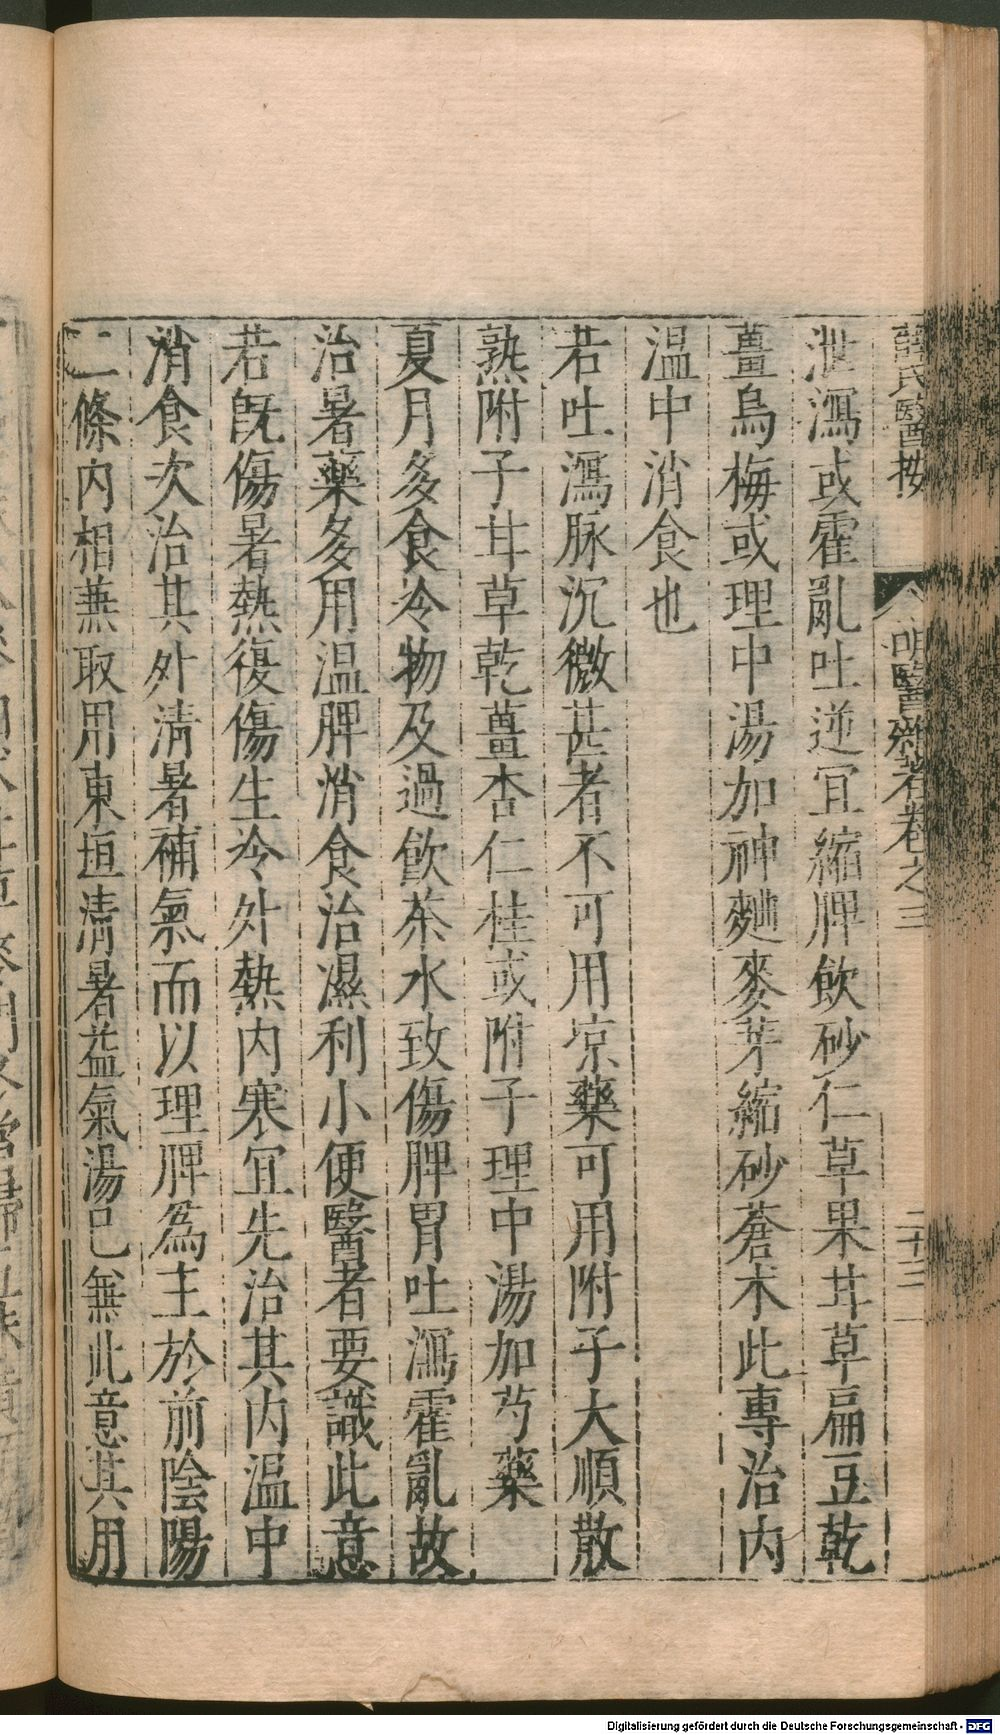 薛氏醫按 明醫雜著卷之三 二十三
泄瀉或霍亂吐逆冝縮脾飲砂仁草果甘草扁豆乾
薑烏梅或理中湯加神麯麥芽縮砂蒼术此專治内
温中消食也
若吐瀉脉沉微甚者不可用凉藥可用附子大順散
熟附子甘草乾薑杏仁桂或附子理中湯加芍藥
夏月多食冷物及過飲茶水致傷脾胃吐瀉霍亂故
治暑藥多用温脾消食治濕利小便醫者要識此意
若既傷暑熱復傷生冷外熱内寒冝先治其内温中
消食次治其外清暑補氣而以理脾爲主於前陰陽
二條内相兼取用東垣清暑益氣湯已無此意其用
Digitalisierung gefördert durch die Deutsche Forschungsgemeinschaft - DFG